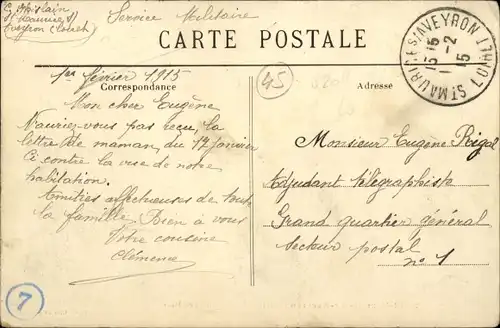 G. Ghislain
St Maurice s/
Aveyron (Loiret)
Service Militaire
CARTE POSTALE
ST MAURICE S/AVEYRON (LOIRET)
15 15
1-2
15
1er février 1915
Correspondance
45
Adresse
Mon cher Eugène
N'auriez-vous pas reçu, la
lettre de maman, du 12 janvier
Ci contre la vue de notre
habitation.
Amitiés affectueuses de toute
la famille Bien à vous
Votre cousine
Clémence
Monsieur Eugène Rigal
Adjudant télégraphiste
Grand quartier général
Secteur postal
n° 1
7